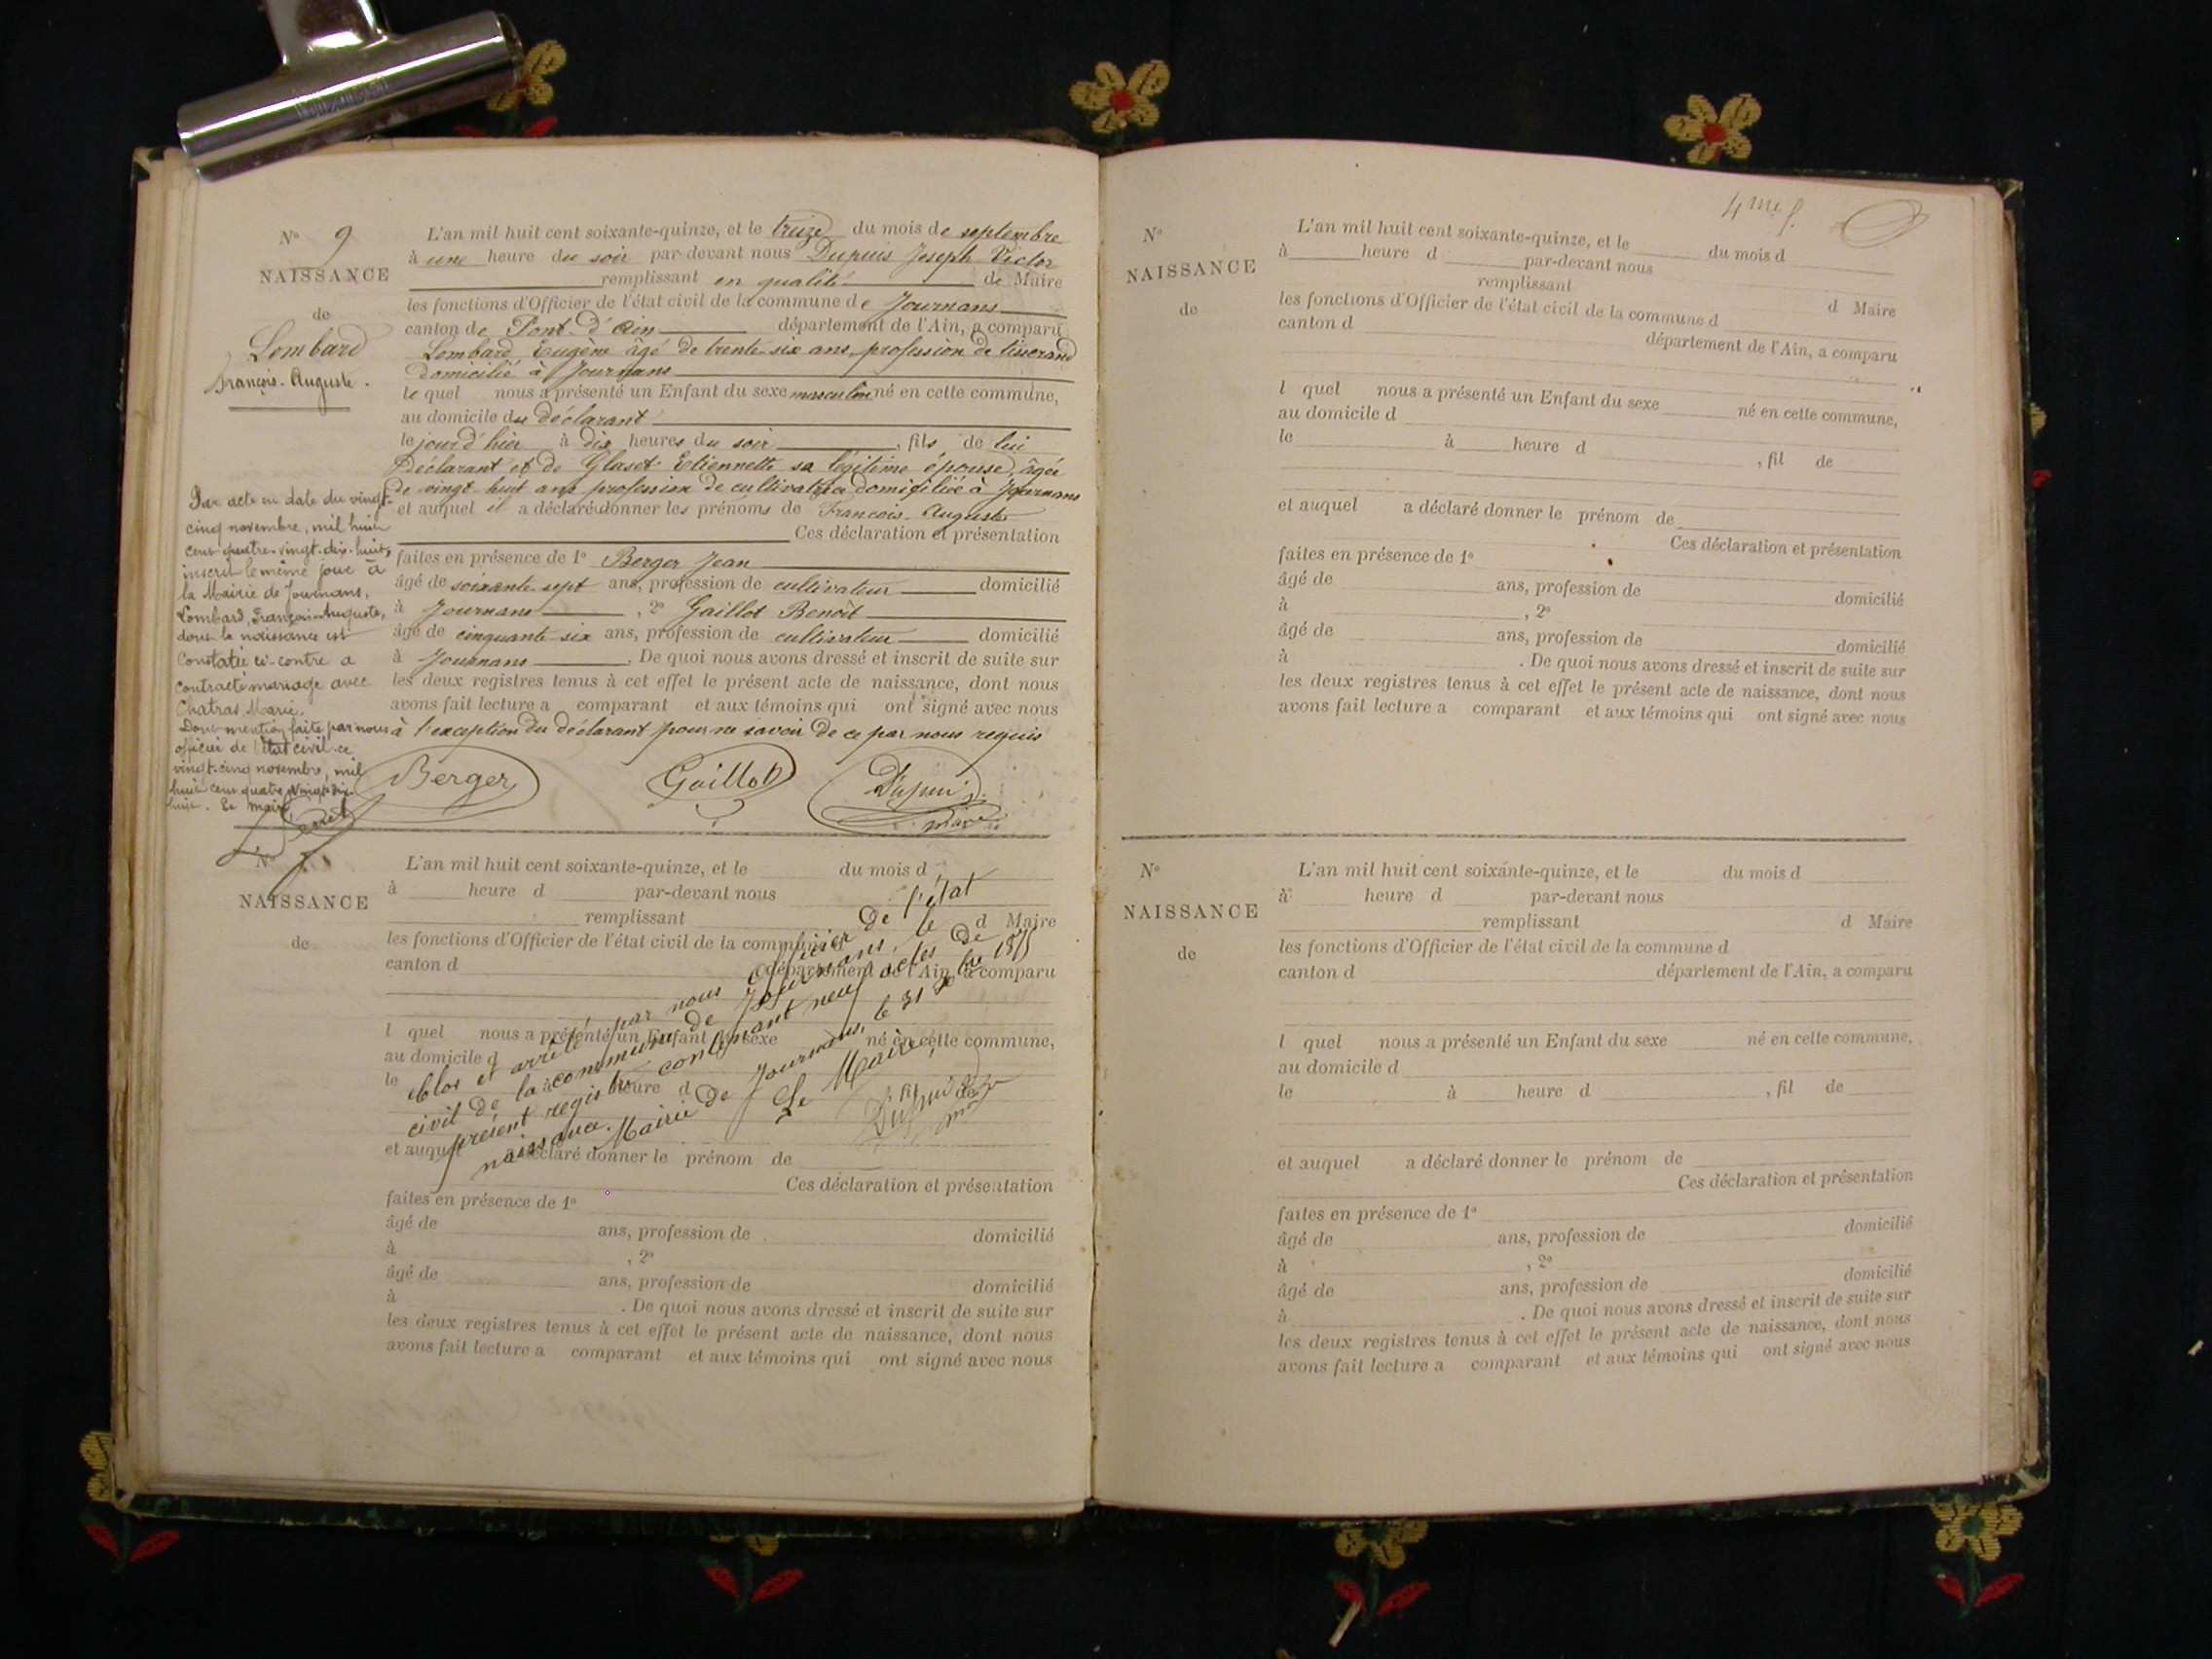 N° 9
NAISSANCE
de
Lombard
François-Auguste.
L'an mil huit cent soixante-quinze, et le treize du mois de septembre
à une heure du soir par-devant nous Dupuis Joseph Victor
remplissant en qualité de Maire
les fonctions d'Officier de l'état civil de la commune de Journans
canton de Pont-d'Ain département de l'Ain, a comparu
Lombard Eugène âgé de trente-six ans, profession de tisserand
domicilié à Journans
le quel nous a présenté un Enfant du sexe masculin né en cette commune,
au domicile du déclarant
le jour d'hier à dix heures du soir, fils de lui
Déclarant et de Glaset Etiennette sa légitime épouse, âgée
de vingt-huit ans profession de cultivatrice domiciliée à Journans
et auquel il a déclaré donner les prénoms de François-Auguste
Ces déclaration et présentation
faites en présence de 1° Berger Jean
âgé de soixante-sept ans, profession de cultivateur domicilié
à Journans, 2° Gaillot Benoît
âgé de cinquante-six ans, profession de cultivateur domicilié
à Journans. De quoi nous avons dressé et inscrit de suite sur
les deux registres tenus à cet effet le présent acte de naissance, dont nous
avons fait lecture a comparant et aux témoins qui ont signé avec nous
à l'exception du déclarant pour ne savoir de ce par nous requis
Berger Gaillot Dupuis
maire
Par acte en date du vingt-
cinq novembre, mil huit
cent quatre-vingt-dix-huit,
inscrit le même jour à
la Mairie de Journans,
Lombard, François-Auguste,
dont la naissance est
Constatée ci-contre a
contracté mariage avec
Chatras Marie.
Dont mention faite par nous
officier de l'état civil ce
vingt-cinq novembre, mil
huit cent quatre vingt-dix-
huit. Le maire
N°
NAISSANCE
de
L'an mil huit cent soixante-quinze, et le du mois d
à heure d par-devant nous
remplissant d Maire
les fonctions d'Officier de l'état civil de la commune d
canton d département de l'Ain, a comparu
l quel nous a présenté un Enfant du sexe né en cette commune,
au domicile d
le à heure d , fil de
et auquel a déclaré donner le prénom de
Ces déclaration et présentation
faites en présence de 1°
âgé de ans, profession de domicilié
à , 2°
âgé de ans, profession de domicilié
à . De quoi nous avons dressé et inscrit de suite sur
les deux registres tenus à cet effet le présent acte de naissance, dont nous
avons fait lecture a comparant et aux témoins qui ont signé avec nous
Clos et arrêté par nous officier de l'état
civil de la commune de Journans, le
présent registre contenant neuf actes de
naissance. Mairie de Journans, le 31 Xbre 1875
Le Maire,
Dupuis
4me f.
N°
NAISSANCE
de
L'an mil huit cent soixante-quinze, et le du mois d
à heure d par-devant nous
remplissant d Maire
les fonctions d'Officier de l'état civil de la commune d
canton d département de l'Ain, a comparu
l quel nous a présenté un Enfant du sexe né en cette commune,
au domicile d
le à heure d , fil de
et auquel a déclaré donner le prénom de
Ces déclaration et présentation
faites en présence de 1°
âgé de ans, profession de domicilié
à , 2°
âgé de ans, profession de domicilié
à . De quoi nous avons dressé et inscrit de suite sur
les deux registres tenus à cet effet le présent acte de naissance, dont nous
avons fait lecture a comparant et aux témoins qui ont signé avec nous
N°
NAISSANCE
de
L'an mil huit cent soixante-quinze, et le du mois d
à heure d par-devant nous
remplissant d Maire
les fonctions d'Officier de l'état civil de la commune d
canton d département de l'Ain, a comparu
l quel nous a présenté un Enfant du sexe né en cette commune,
au domicile d
le à heure d , fil de
et auquel a déclaré donner le prénom de
Ces déclaration et présentation
faites en présence de 1°
âgé de ans, profession de domicilié
à , 2°
âgé de ans, profession de domicilié
à . De quoi nous avons dressé et inscrit de suite sur
les deux registres tenus à cet effet le présent acte de naissance, dont nous
avons fait lecture a comparant et aux témoins qui ont signé avec nous